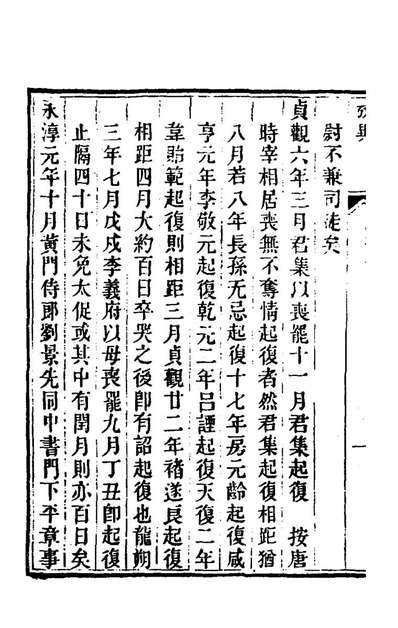 尉不兼司徒矣
貞觀六年三月君集以喪罷十一月君集起復　按唐
時宰相居喪無不奪情起復者然君集起復相距猶
八月若八年長孫无忌起復十七年房元齡起復咸
亨元年李敬元起復乾元二年呂諲起復天復二年
韋貽範起復則相距三月貞觀廿二年褚遂良起復
相距四月大約百日卒哭之後卽有詔起復也龍朔
三年七月戊戌李義府以母喪罷九月丁丑卽起復
止隔四十日未免太促或其中有閏月則亦百日矣
永淳元年十月黃門侍郎劉景先同中書門下平章事